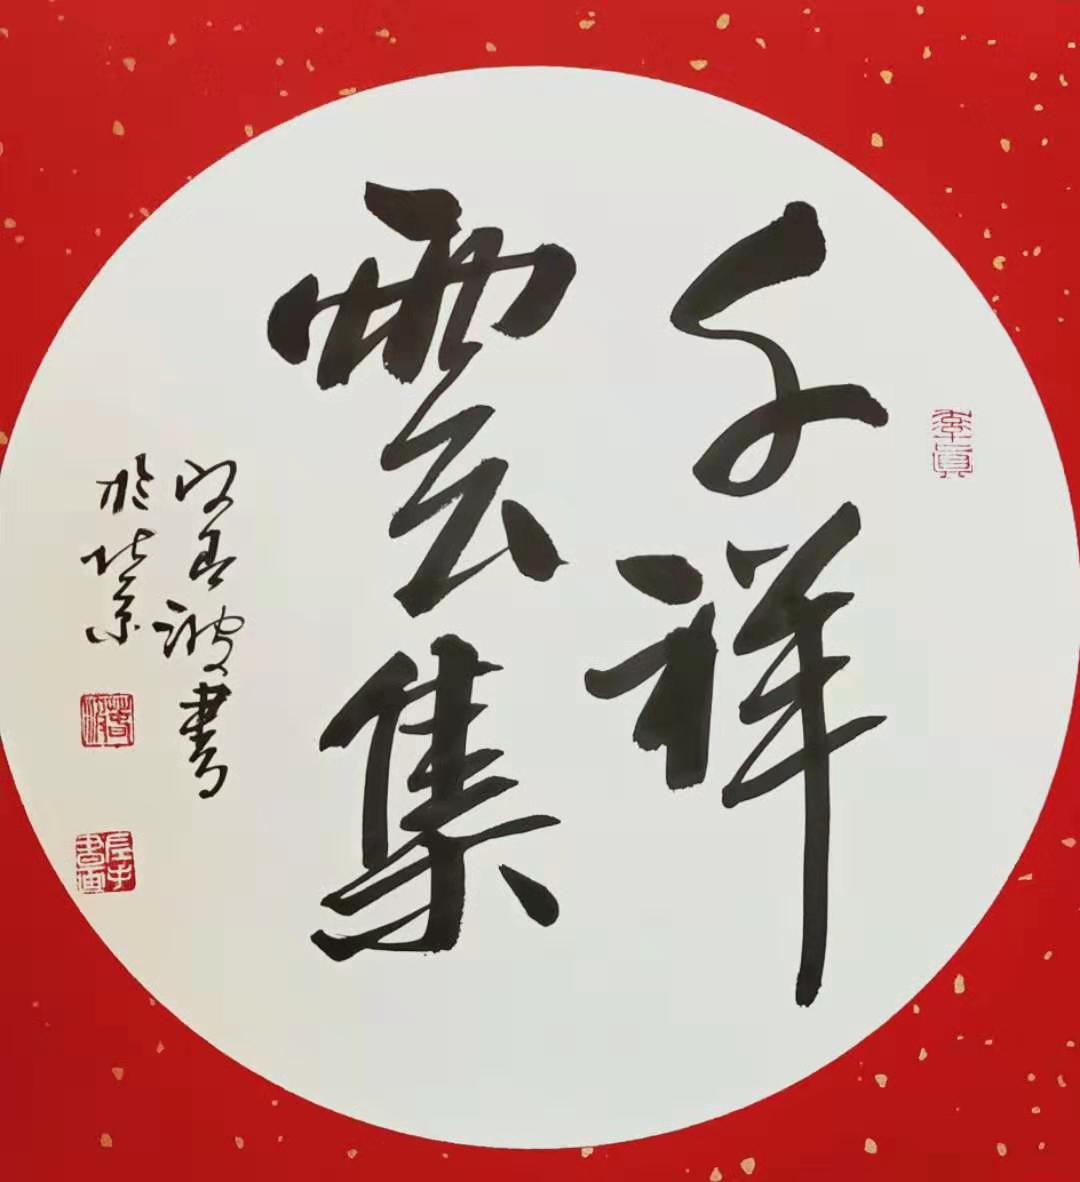 千祥
雲集
春波書
於北京